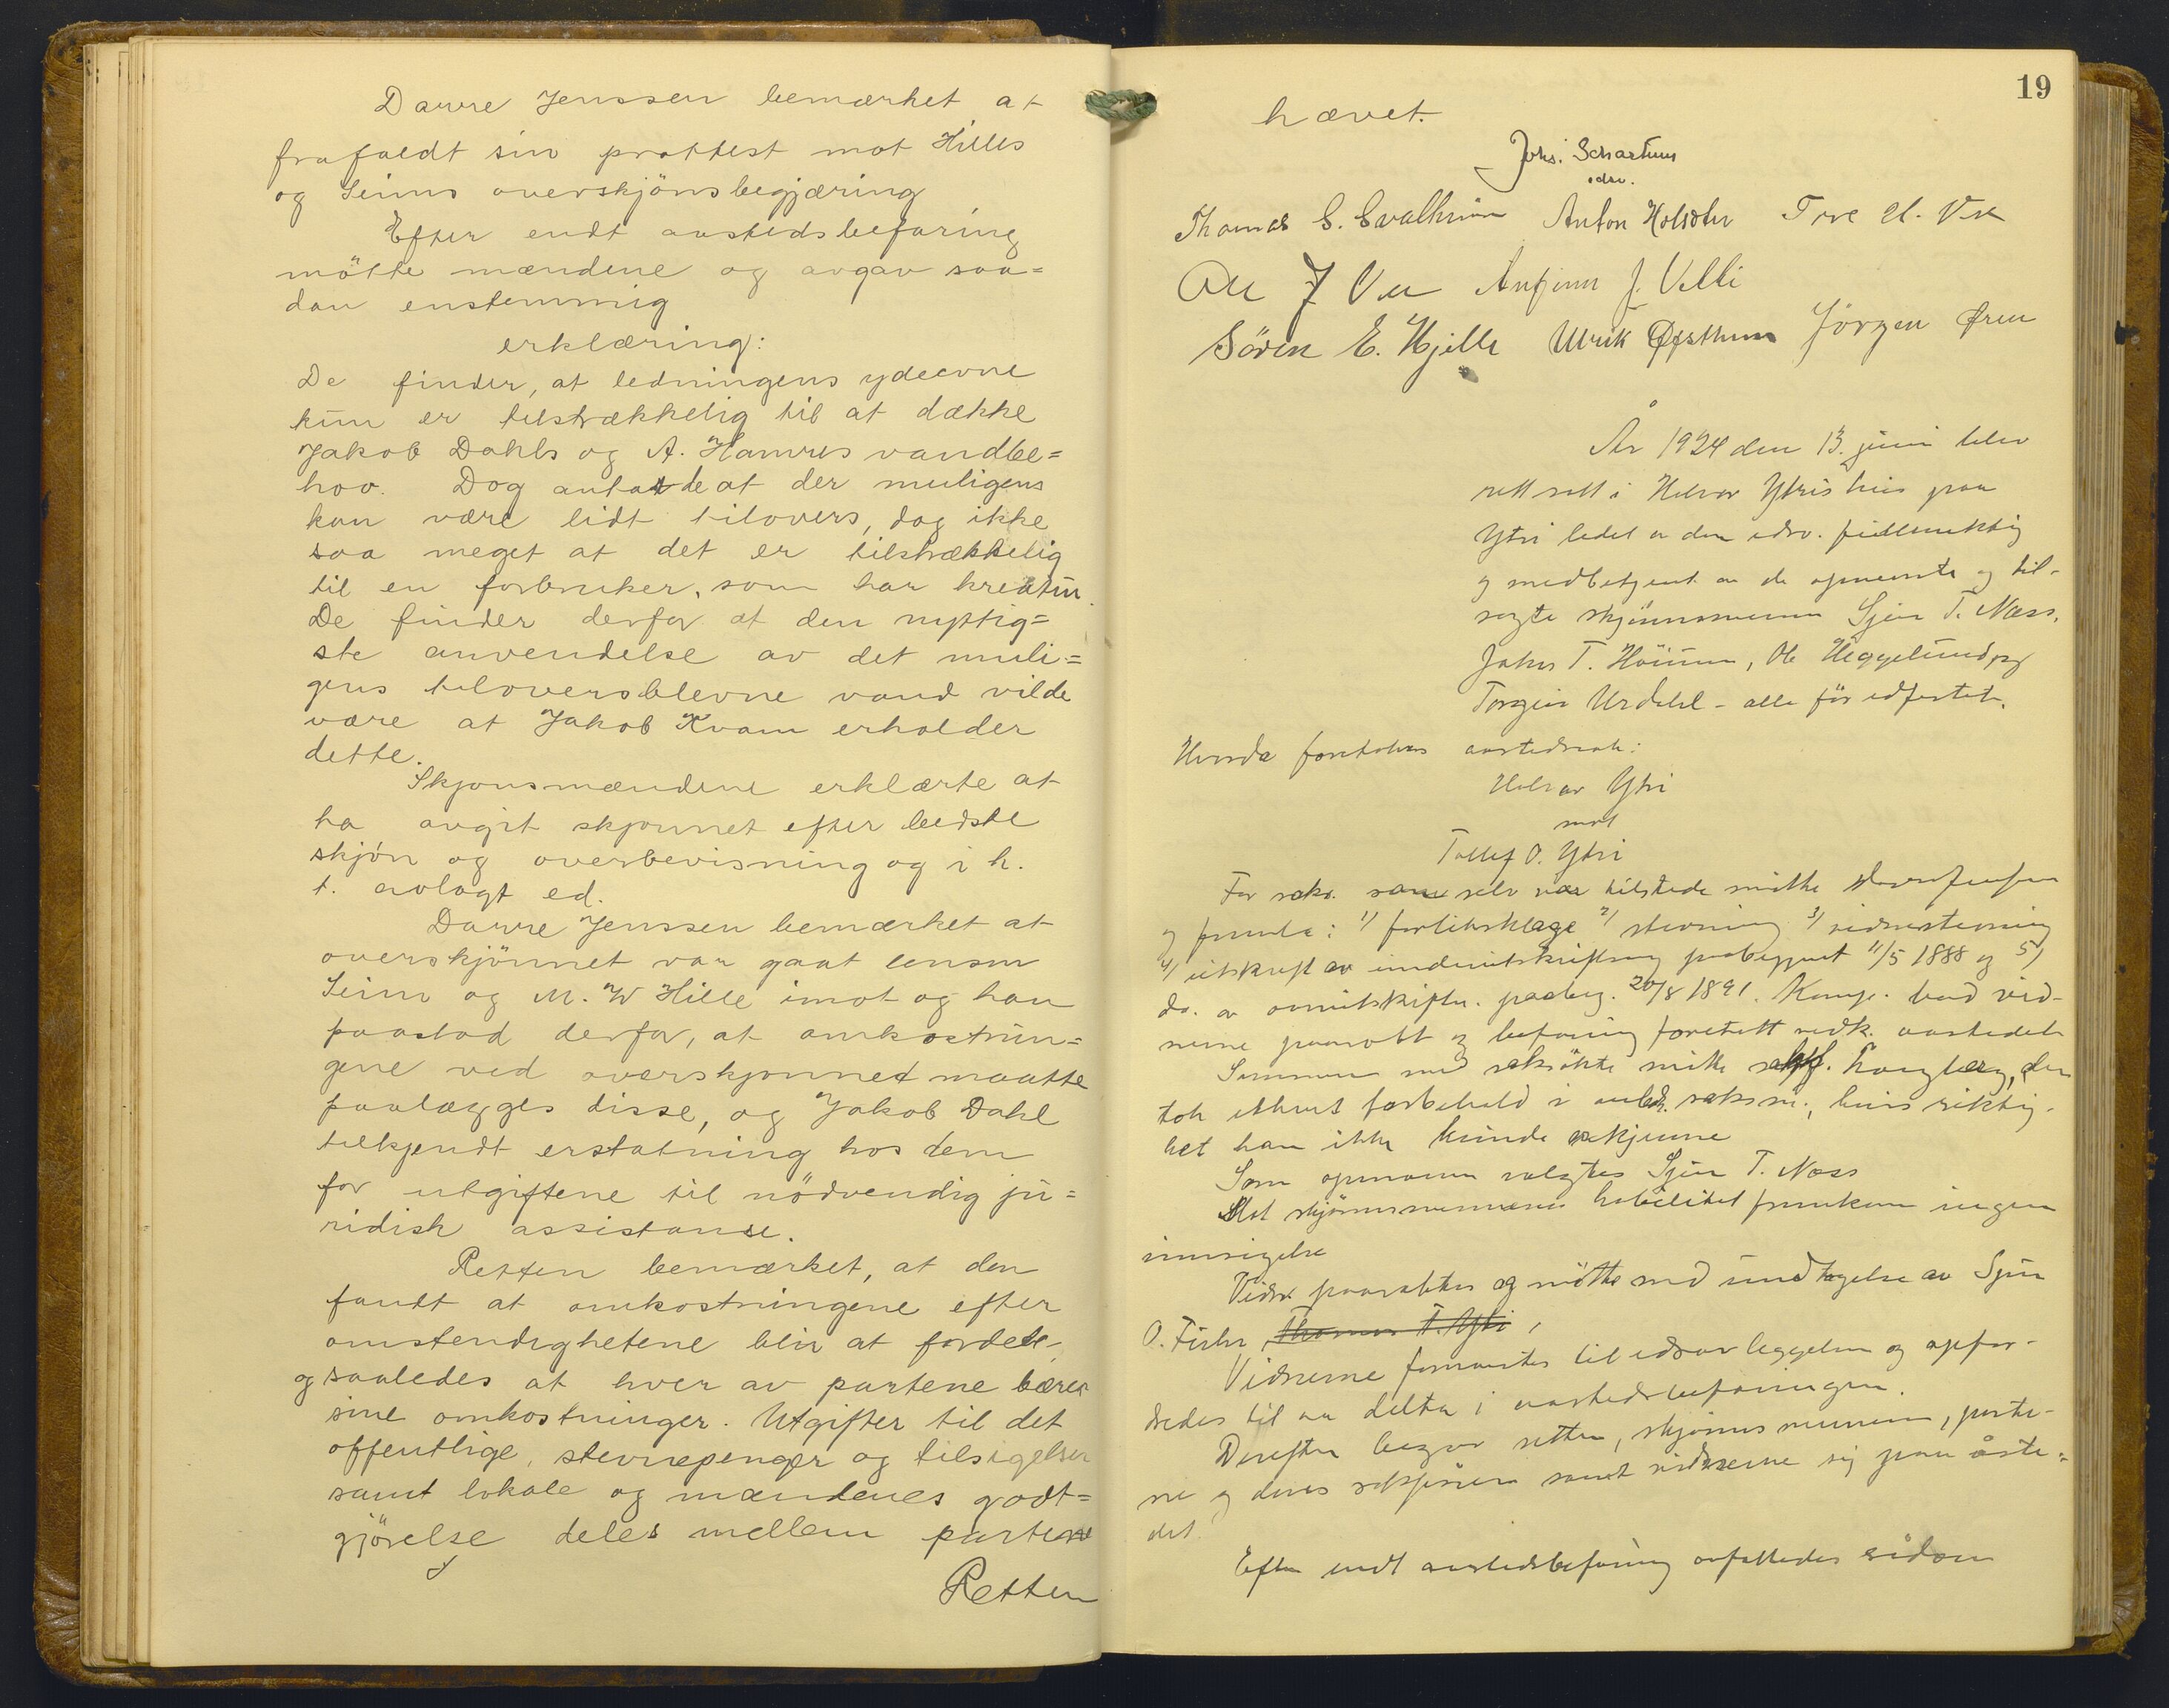 Darre Jenssen bemærket at
frafaldt sin prottest mot Hilles
og Seims overskjönsbegjæring
Efter endt aastedsbefaring
mötte mændene og avgav saa=
dan enstemmig
erklæring:
De finder, at ledningens ydeevne
kun er tilstrækkelig til at dække
Jakob Dahls og A. Hamres vandbe=
hov. Dog antas de at der muligens
kan være lidt tilovers, dog ikke
saa meget at det er tilstrækkelig
til en forbruker, som har kreatur.
De finder derfor at den nyttig=
ste anvendelse av det muli=
gens tiloversblevne vand vilde
være at Jakob Kvam erholder
dette.
Skjønsmændene erklærte at
ha avgit skjønnet efter bedste
skjön og overbevisning og i h.
t. avlagt ed.
Darre Jenssen bemærket at
overskjönnet var gaat lensm
Seim og M. W Hille imot og han
paastod derfor, at omkostnin=
gene ved overskjonnet maatte
paalægges disse, og Jakob Dahl
tilkjendt erstatning hos dem
for utgiftene til nödvendig ju=
ridisk assistanse.
Retten bemærket, at den
fandt at omkostningene efter
omstendighetene blir at fordele
og saaledes at hver av partene bærer
sine omkostninger. Utgifter til det
offentlige, stevnepenger og tilsigelser
samt lokale og mændenes godt=
gjörelse deles mellem partene
Retten
19
hævet.
Johs. Schartum
edsv.
Thomas Anton Tore
Ole J Anfinn J. Velli
Sören E. Hjelle Ulrik Øfsthun Jörgen Øren
År 1924 den 13. juni blev
rett satt i Halvor Ytris hus paa
Ytri ledet av den edsv. fuldmektig
og medbetjent av de opnevnte og til-
sagte skjönnsmenn Sjur T. Næss,
Johs T. Ole Heggelund og
Torgeir Urdahl - alle för edfestet.
Hvorda foretokes aastedsak:
Halvor Ytri
mot
Tollef O. Ytri
For saks. som selv var tilstede mötte
og fremla: 1/ forliksklage 2/ stevning 3/ vidnestevning
4/ utskrift av paabegynt 11/5 1888 og 5/
do. av paabeg. 20/8 1891. Komp. bad vid-
nerne paaropt og befaring foretatt aastedet
Sammen med saksökte mötte den
tok ethvert forbehold i hvis riktig-
het han ikke kunde
Som opmann valgtes Sjur T. Næss
Mot skjönnsmennenes habilitet fremkom ingen
innsigelse
Vidn. paaroptes og mötte med undtagelse av Sjur
O. Thomas T. Ytri,
Vidnerne formantes til edsavleggelsen og opfor-
dredes til aa delta i aastedsbefaringen.
Derefter begav retten, skjönnsmennene, parte-
ne og deres samt vidnerne sig paa åste-
det.
Efter endt aastedsbefaring avfattedes sådan